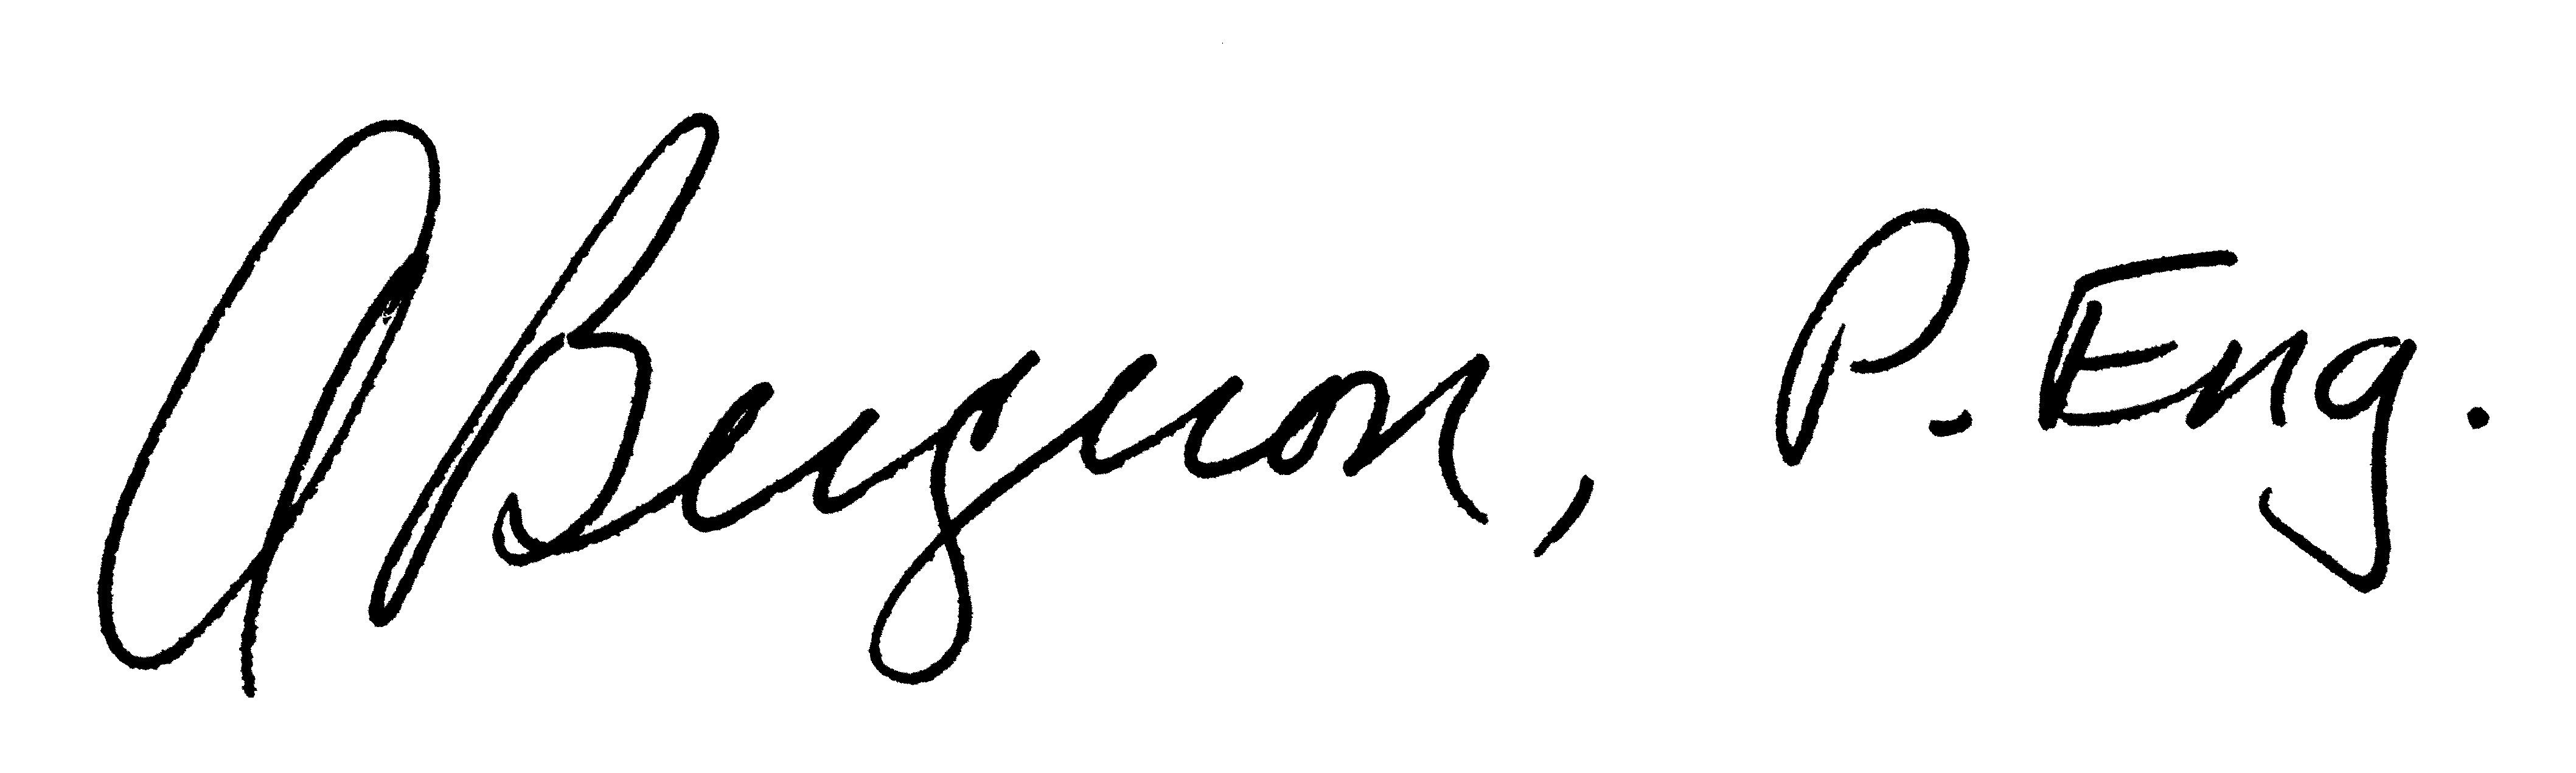 A Bergeron, P. Eng.